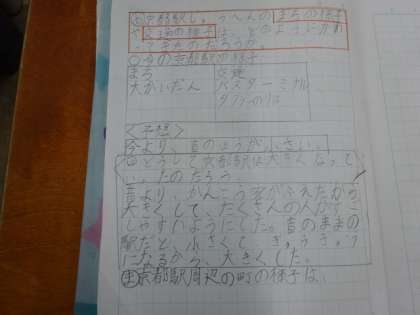 め京都駅しゅうへんのまちの様子
や交通の様子は、どのようにかわ
ってきたのだろうか。
○今の京都駅の様子
まち 交通
大かいだん バスターミナル
タクシーのりば
<予想>
今より、昔のほうが小さい。
どうして京都駅は大きくなって
いったのだろう
昔より、かんこう客がふえたから
大きくして、たくさんの人が
しやすいようにした。昔のままの
駅だと、小さくて、ぎゅうぎゅう
になるから、大きくした。
ま京都駅周辺の町の様子は、